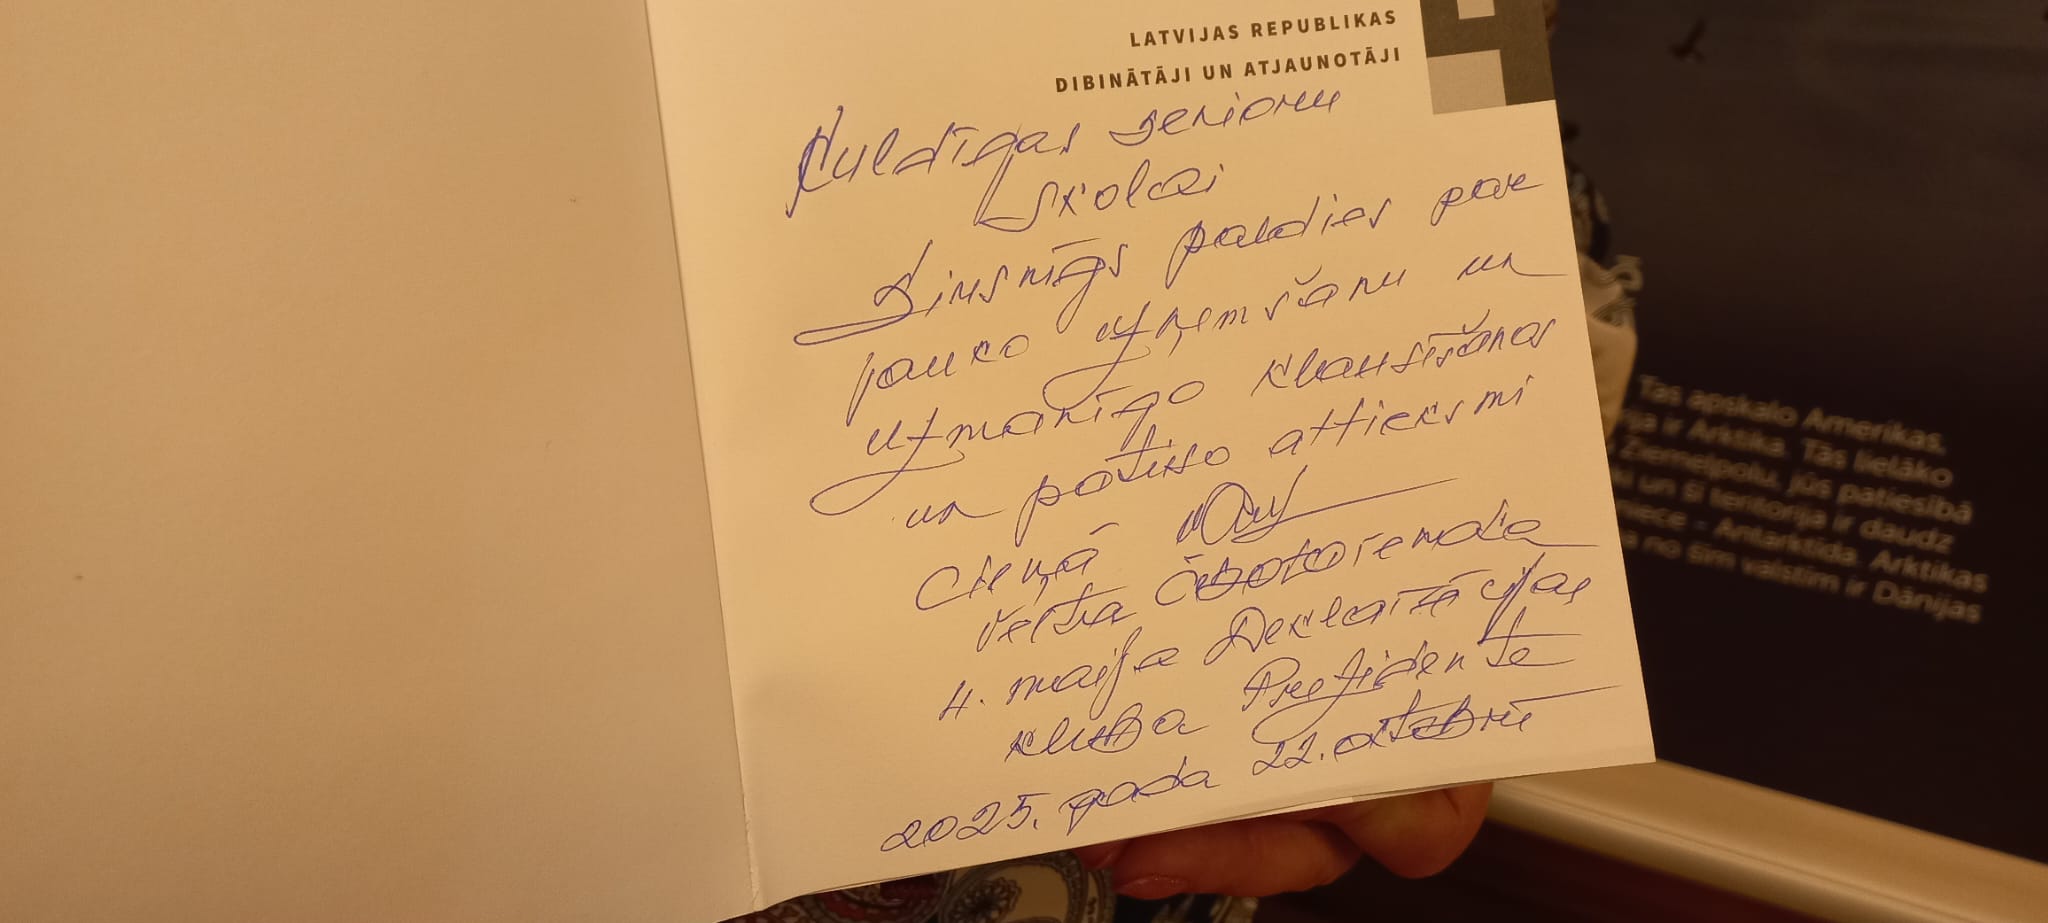 LATVIJAS REPUBLIKAS
DIBINĀTĀJI UN ATJAUNOTĀJI
Kuldīgas senioru
skolai
Sirsnīgs paldies par
jauko uzņemšanu un
uzmanīgo klausīšanos
un patieso attieksmi
Cieņā
Velta Čebotarenoka
4. maija Deklarācijas
kluba Prezidente
2025. gada 22. oktobrī
Tas apskalo Amerikas,
ir Arktika. Tās lielāko
Ziemeļpolu, jūs patiesībā
un šī teritorija ir daudz
Antarktīda. Arktikas
no šīm valstīm ir Dānijas